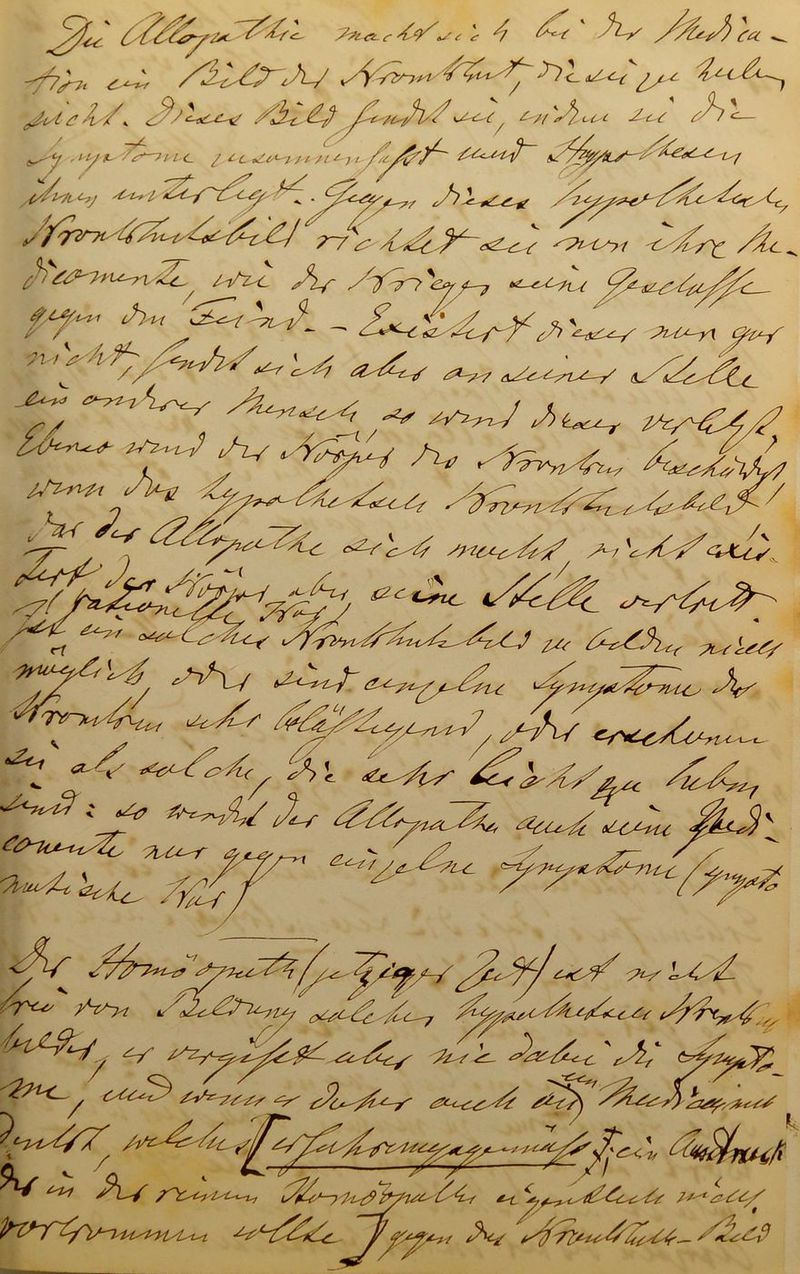 Die Allopathie macht sich bei der Medica-
tion ein Bild der Krankheit, die sie zu heilen
sucht. Dieses Bild findet sie, indem sie die
Symptome zusammenfaßt und Hypothesen
ihnen unterlegt. Gegen dieses hypothetische
Krankheitsbild richtet sie nun ihre Me-
dicamente, wie der Krieger seine Geschosse
gegen den Feind. - Existirt dieser nun gar
nicht, findet sich aber an seiner Stelle
ein anderer Mensch, so wird dieser verletzt,
Ebenso wird der Körper des Kranken beschädigt,
wenn das hypothetische Krankheitsbild,
das der Allopathe sich macht, nicht exis-
tirt, der Körper aber seine Stelle vertritt
(rationelle Kur)
Ist ein solches Krankheitsbild zu bilden nicht
möglich, oder sind einzelne Symptome des
Kranken sehr belästigend, oder erscheinen
sie als solche, die sehr leicht zu heben
sind: so wendet der Allopathe auch seine Medi-
camente nur gegen einzelne Symptome (sympto
matische Kur)
Der Homöopath (jetziger Zeit) ist nicht
frei von Bildung solcher hypothetischen
bilder, er vergißt aber nie dabei die Sympto-
me, und wenn er daher auch an ein Medicament
denkt, welches [erfahrungsgemäß ein Ausdruck
der in der reinen Homöopathie eigentlich nicht
vorkommen sollte] gegen das Krankheits-Bild